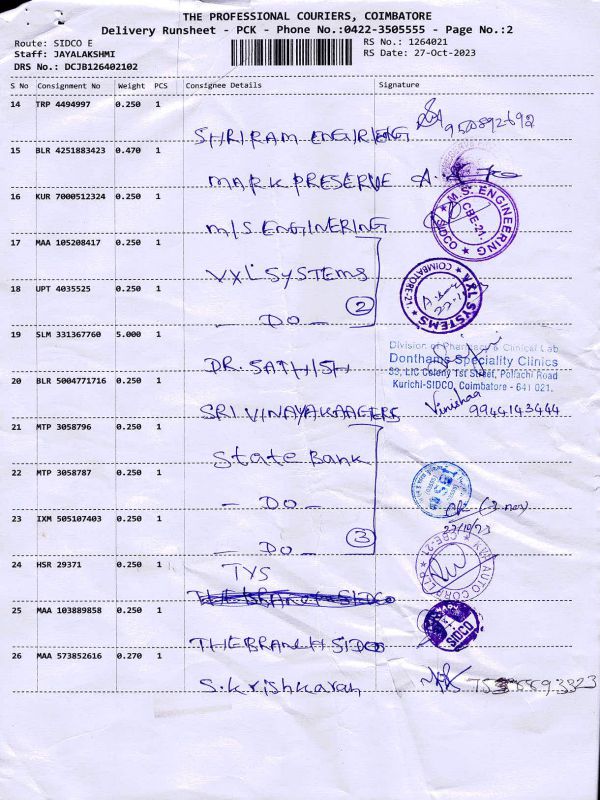 THE PROFESSIONAL COURIERS, COIMBATORE
Delivery Runsheet - PCK - Phone No.:0422-3505555 - Page No.:2
Route: SIDCO E
Staff: JAYALAKSHMI
DRS No.: DCJB126402102
RS No.: 1264021
RS Date: 27-Oct-2023
S No Consignment No Weight PCS Consignee Details Signature
14 TRP 4494997 0.250 1
SHRIRAM ENGIRIENG
15 BLR 4251883423 0.470 1
MARK PRESERVE
16 KUR 7000512324 0.250 1
M/S ENGINEERING
M.S. ENGINEERING
CBE-21.
SIDCO
17 MAA 105208417 0.250 1
VXL SYSTEMS
18 UPT 4035525 0.250 1
- DO - 2
COIMBATORE-21.
V&L SYSTEMS
19 SLM 331367760 5.000 1
DR. SATHISH
Division of Pharmacy & Clinical Lab
Donthams Speciality Clinics
53, LIC Colony 1st Street, Pollachi Road
Kurichi-SIDCO, Coimbatore - 641 021.
20 BLR 5004771716 0.250 1
SRI VINAYAKAAGERS
9944143444
21 MTP 3058796 0.250 1
State Bank
22 MTP 3058787 0.250 1
- DO -
23 IXM 505107403 0.250 1
- DO - 3
24 HSR 29371 0.250 1
TYS
CBE-21
25 MAA 103889858 0.250 1
THE BRANCH SIDCO
SIDCO
26 MAA 573852616 0.270 1
S. Krishkaran